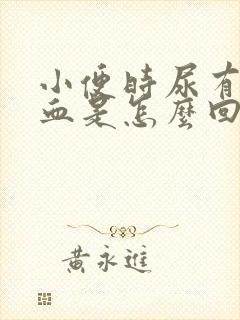 小便時尿有
血是怎麼回
黃永進